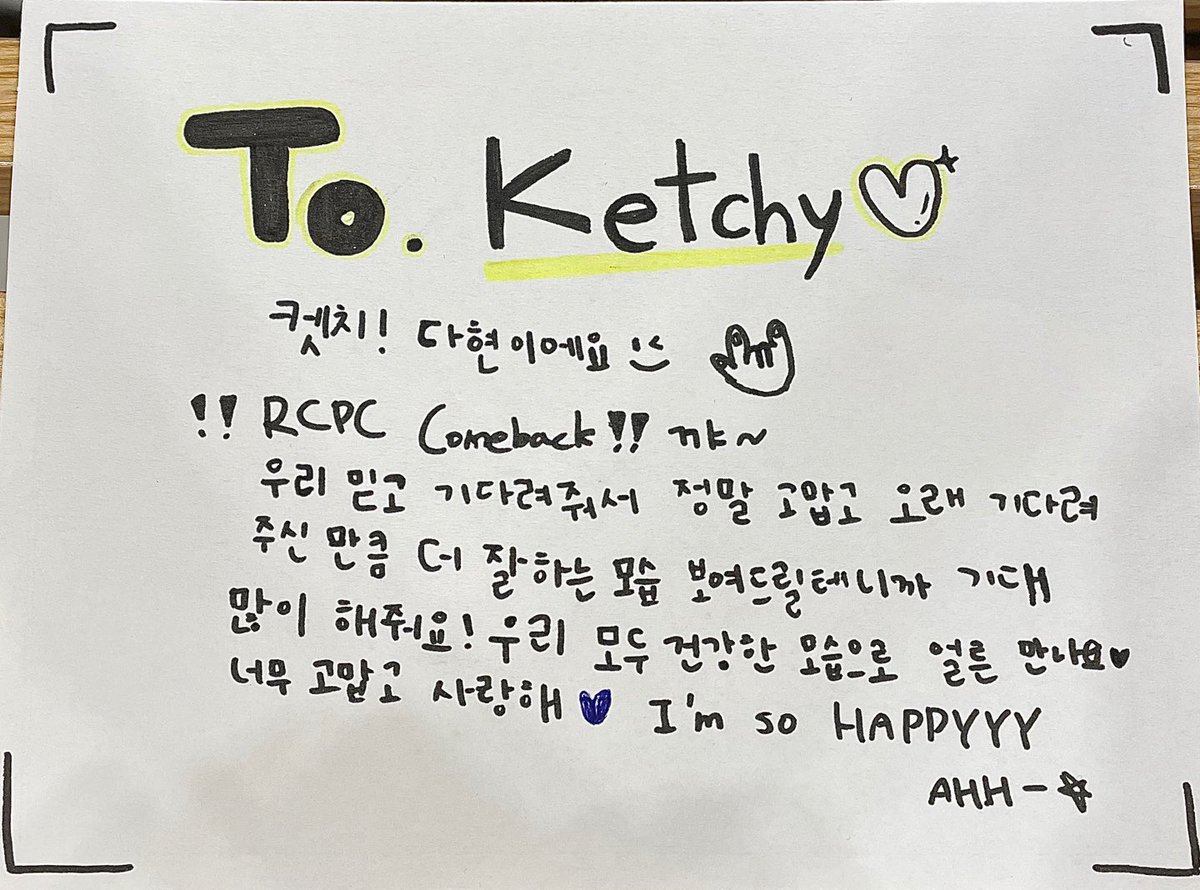 To. Ketchy♡
켓치! 다현이에요
!! RCPC Comeback!! 꺄~
우리 믿고 기다려줘서 정말 고맙고 오래 기다려
주신 만큼 더 잘하는 모습 보여드릴테니까 기대
많이 해줘요! 우리 모두 건강한 모습으로 얼른 만나요♥
너무 고맙고 사랑해♥ I'm so HAPPYYY
AHH-☆